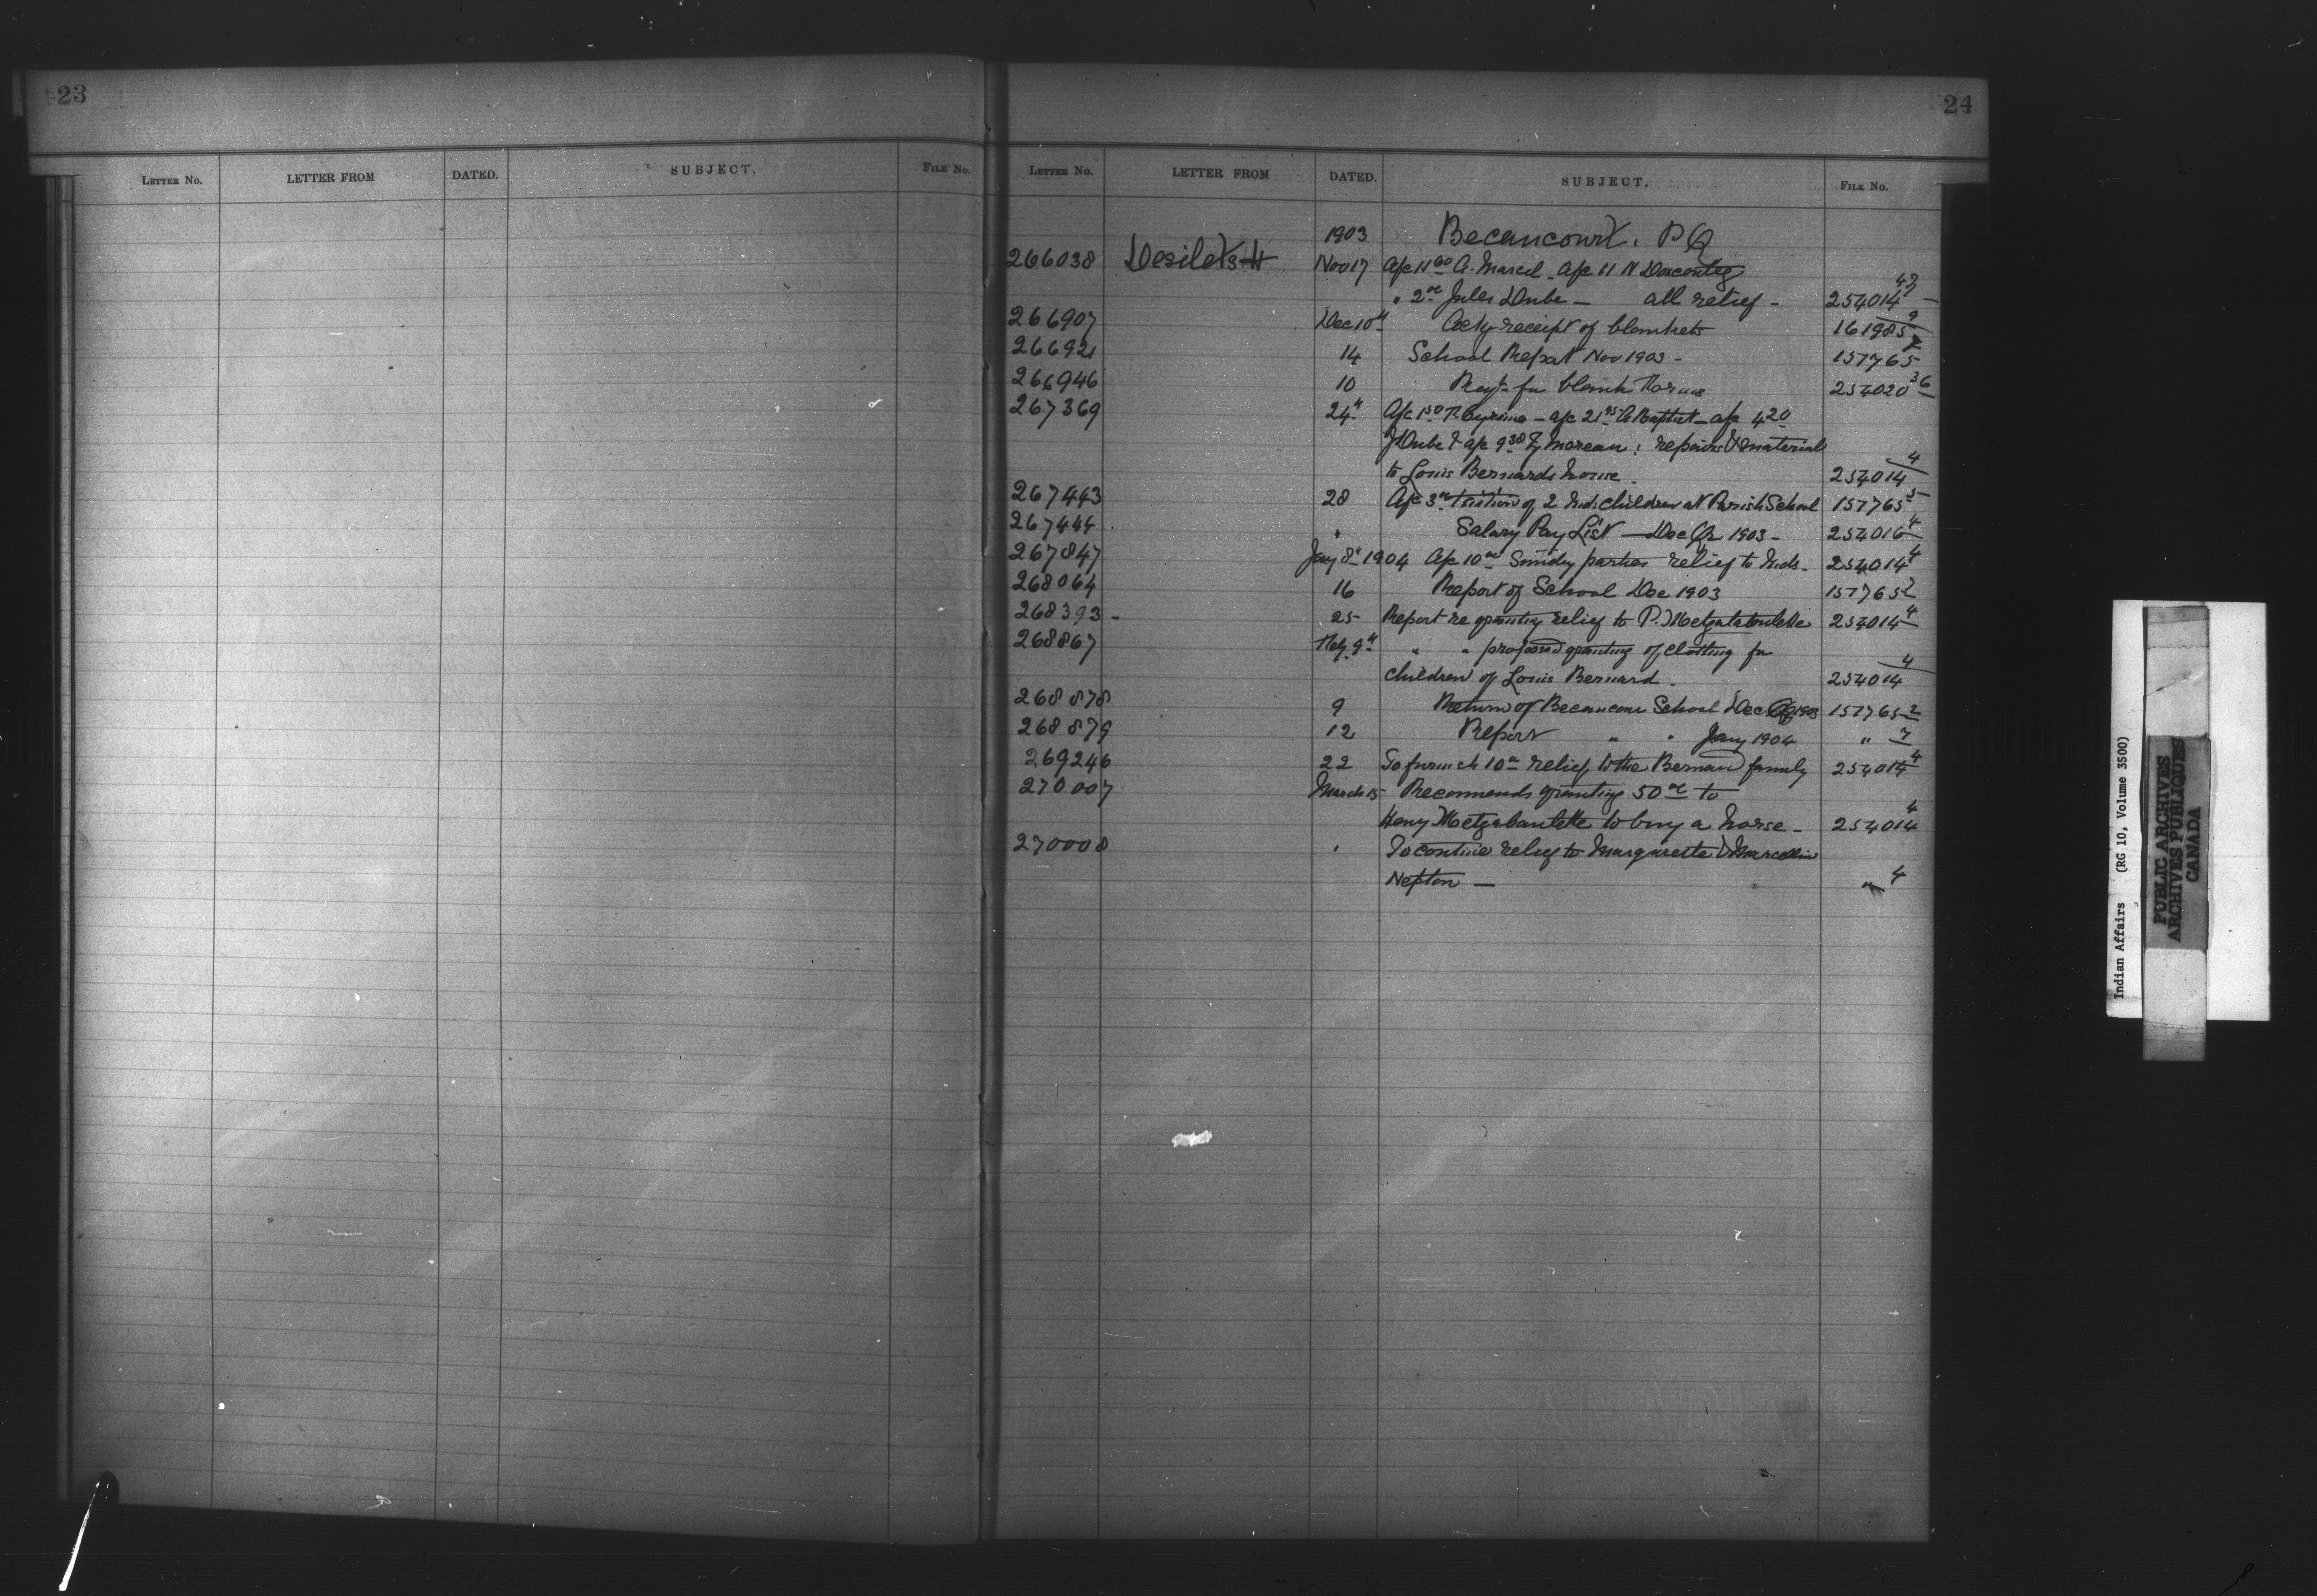 23
24
LETTER No. LETTER FROM DATED. SUBJECT. FILE No.
LETTER No. LETTER FROM DATED. SUBJECT. FILE No.
1903 Becancourt. P Q
266038 Desilets H Nov 17 A/c 11 60 A. Marcel - A/c 11 N
" 2 00 Jules Dube - all relief - 254014
266907 Dec 10th Ackg receipt of blankets 161985
266921 14 School Report Nov 1903 - 157765
266946 10 Reqt. for blank Forms 254020 36
267369 24th A/c 1 50 - a/c 21 95 A Baptist - a/c 4 20
J Dube & a/c 9 38 Z Moreau : repairs & material
to Louis Bernards house . 254014 4
267443 28 A/c 3 00 tuition of 2 Ind: children at Parish School 157765 5
267444 " Salary Pay List - Dec Qr 1903 - 254016 4
267847 Jany 8th 1904 A/c 10 00 Sundry parties relief to Inds. 254014 4
268064 16 Report of School Dec 1903 157765 2
268393 - 25 Report re granting relief to P. Metzalabulette 254014 4
268867 Feby. 9th " " proposed granting of clothing for
children of Louis Bernard . 254014 4
268878 9 Return of Becancour School Dec Qr 1903 157765 2
268879 12 Report " " Jany 1904 " 7
269246 22 To furnish 10 00 relief to the Bernard family 254014 4
270007 March 15 Recommends granting 50 00 to
Henry Metzabaulette to buy a horse - 254014 4
270008 " To continue relief to Marguerite & Marcelline
Nepton - " 4
Indian Affairs (RG 10, Volume 3500)
PUBLIC ARCHIVES
ARCHIVES PUBLIQUES
CANADA